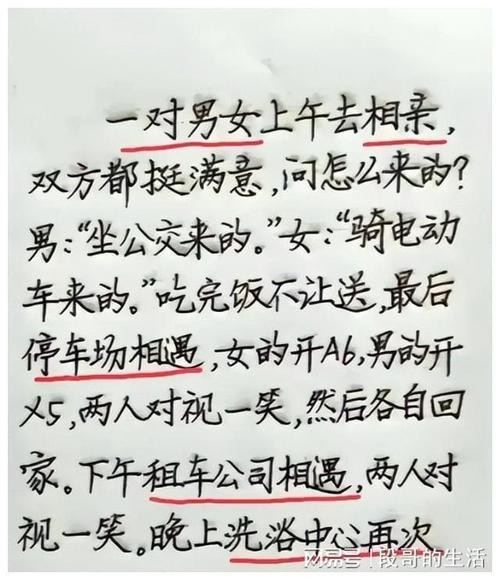 一对男女上午去相亲,
双方都挺满意,问怎么来的?
男:“坐公交来的。”女:“骑电动
车来的。”吃完饭不让送,最后
停车场相遇,女的开A6,男的开
X5,两人对视一笑,然后各自回
家。下午租车公司相遇,两人对
视一笑。晚上洗浴中心再次
网易号 | 段哥的生活